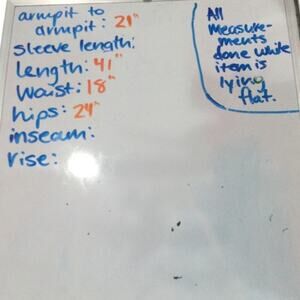 armpit to
armpit: 21"
sleeve length:
Length: 41"
Waist: 18"
hips: 24"
inseam:
rise:
All
Measure-
ments
done while
item is
lying
flat.